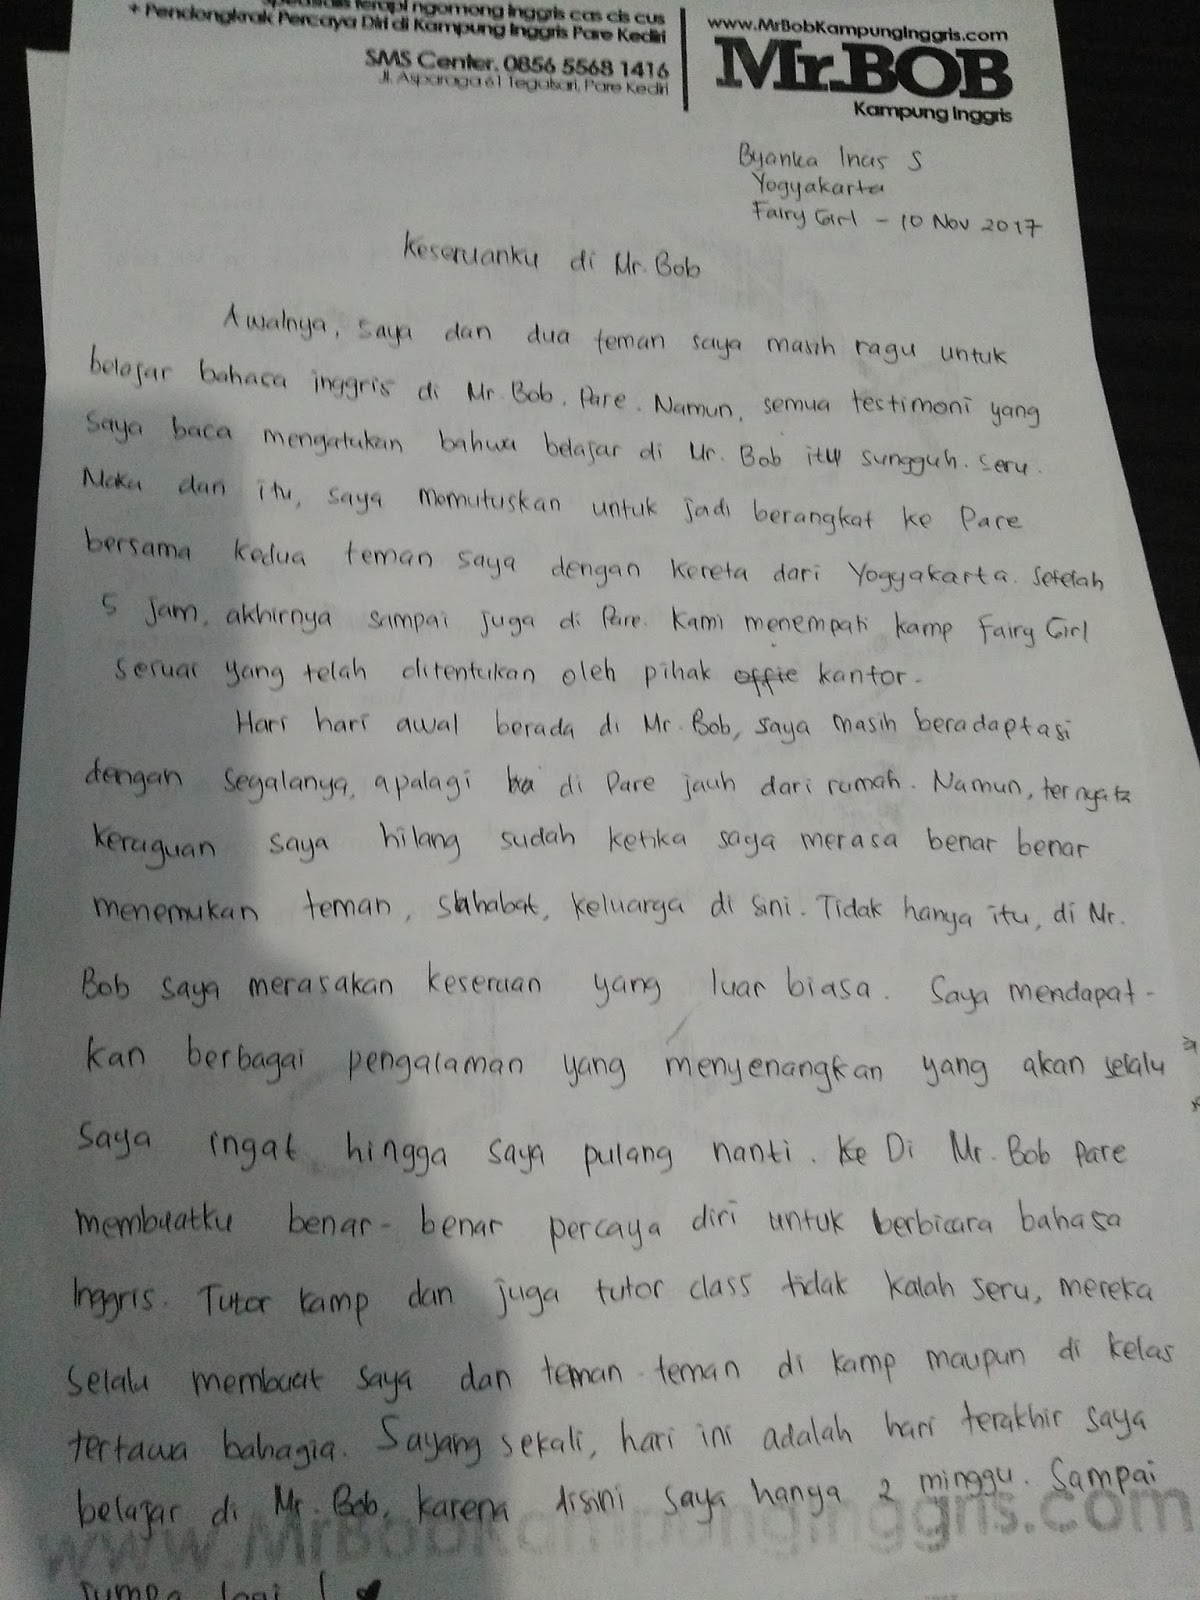 spesialis terapi ngomong inggris cas cis cus
+ Pendongkrak Percaya Diri di Kampung Inggris Pare Kediri
SMS Center. 0856 5568 1416
Jl. Asparaga 61 Tegalsari, Pare Kediri
www.MrBobKampungInggris.com
Mr.BOB
Kampung Inggris
Byanka Inas S
Yogyakarta
Fairy Girl - 10 Nov 2017
Keseruanku di Mr. Bob
Awalnya, saya dan dua teman saya masih ragu untuk
belajar bahasa inggris di Mr. Bob. Pare. Namun, semua testimoni yang
saya baca mengatakan bahwa belajar di Mr. Bob itu sungguh. seru.
Maka dari itu, saya memutuskan untuk jadi berangkat ke Pare
bersama kedua teman saya dengan kereta dari Yogyakarta. Setelah
5 jam, akhirnya sampai juga di Pare. Kami menempati kamp Fairy Girl
sesuai yang telah ditentukan oleh pihak offie kantor.
Hari hari awal berada di Mr. Bob, saya masih beradaptasi
dengan segalanya, apalagi di Pare jauh dari rumah. Namun, ternyata
keraguan saya hilang sudah ketika saya merasa benar benar
menemukan teman, sahabat, keluarga di sini. Tidak hanya itu, di Mr.
Bob saya merasakan keseruan yang luar biasa. Saya mendapat-
kan berbagai pengalaman yang menyenangkan yang akan selalu
saya ingat hingga saya pulang nanti. Ke Di Mr. Bob Pare
membuatku benar-benar percaya diri untuk berbicara bahasa
Inggris. Tutor kamp dan juga tutor class tidak kalah seru, mereka
selalu membuat saya dan teman-teman di kamp maupun di kelas
tertawa bahagia. Sayang sekali, hari ini adalah hari terakhir saya
belajar di Mr. Bob, karena disini saya hanya 2 minggu. Sampai
jumpa lagi ! ♥
www.MrBobKampunginggris.com